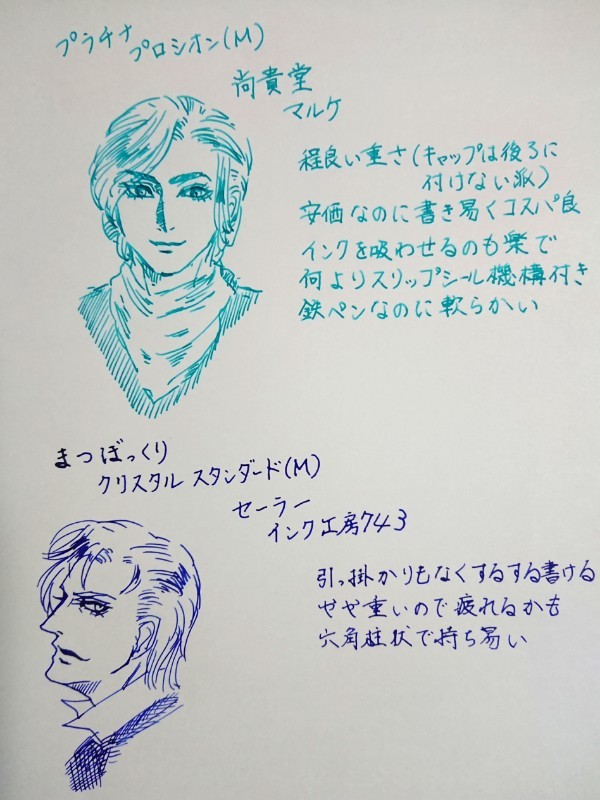 プラチナ
プロシオン(M)
尚貴堂
マルケ
程良い重さ(キャップは後ろに
付けない派)
安価なのに書き易くコスパ良
インクを吸わせるのも楽で
何よりスリップシール機構付き
鉄ペンなのに軟らかい
まつぼっくり
クリスタル スタンダード(M)
セーラー
インク工房743
引っ掛かりもなくするする書ける
やや重いので疲れるかも
六角柱状で持ち易い